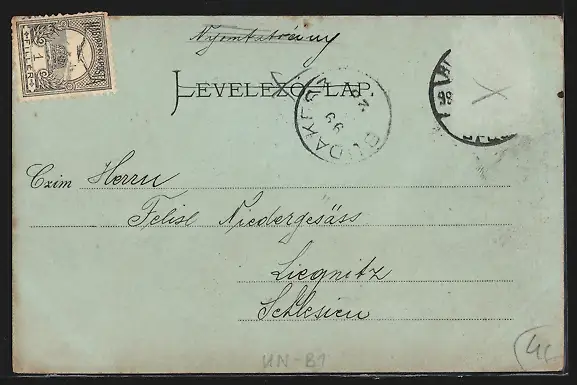 Nyomtatvány
1
FILLÉR
LEVELEZŐ-LAP.
99
Czim Herrn
Felix Niedergesäss
Liegnitz
Schlesien
UN-B1